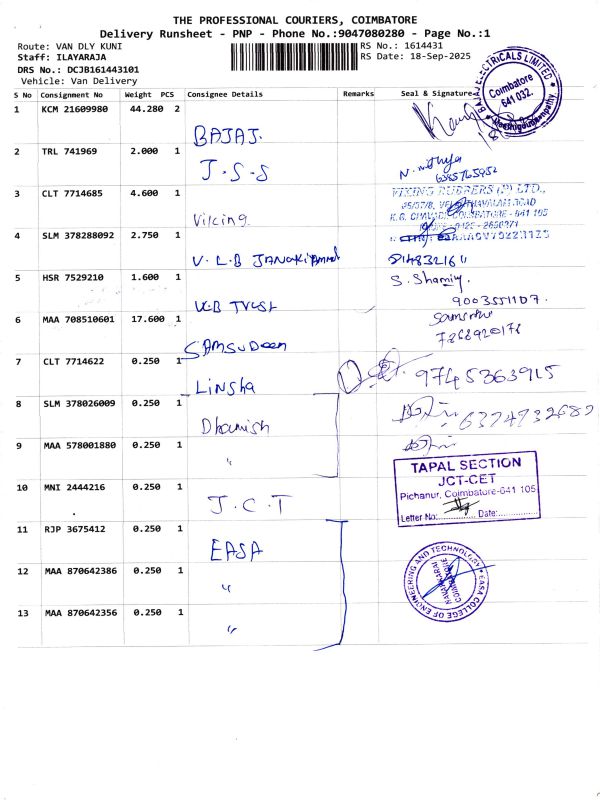 THE PROFESSIONAL COURIERS, COIMBATORE
Delivery Runsheet - PNP - Phone No.:9047080280 - Page No.:1
Route: VAN DLY KUNI
RS No.: 1614431
Staff: ILAYARAJA
RS Date: 18-Sep-2025
DRS No.: DCJB161443101
Vehicle: Van Delivery
S No Consignment No Weight PCS Consignee Details Remarks Seal & Signature
BAJAJ ELECTRICALS LIMITED
Coimbatore
641 032.
1 KCM 21609980 44.280 2
BAJAJ.
2 TRL 741969 2.000 1
J.S.S
N. nithya
6385765952
3 CLT 7714685 4.600 1
Viking
VIKING RUBBERS (P) LTD.,
COIMBATORE - 641 105
4 SLM 378288092 2.750 1
V.L.B JANAKIAmmal
5 HSR 7529210 1.600 1
S. Shamiy
9003551107.
6 MAA 708510601 17.600 1
SAMSUDeen
7868920178
7 CLT 7714622 0.250 1
Linsha
9745363915
8 SLM 378026009 0.250 1
Dhanish
6374932682
9 MAA 578001880 0.250 1
"
TAPAL SECTION
JCT-CET
Pichanur, Coimbatore-641 105
Letter No:............ Date:............
10 MNI 2444216 0.250 1
J.C.T
11 RJP 3675412 0.250 1
EASA
EASA COLLEGE OF ENGINEERING AND TECHNOLOGY
NAVAKKARAI
COIMBATORE
12 MAA 870642386 0.250 1
"
13 MAA 870642356 0.250 1
"